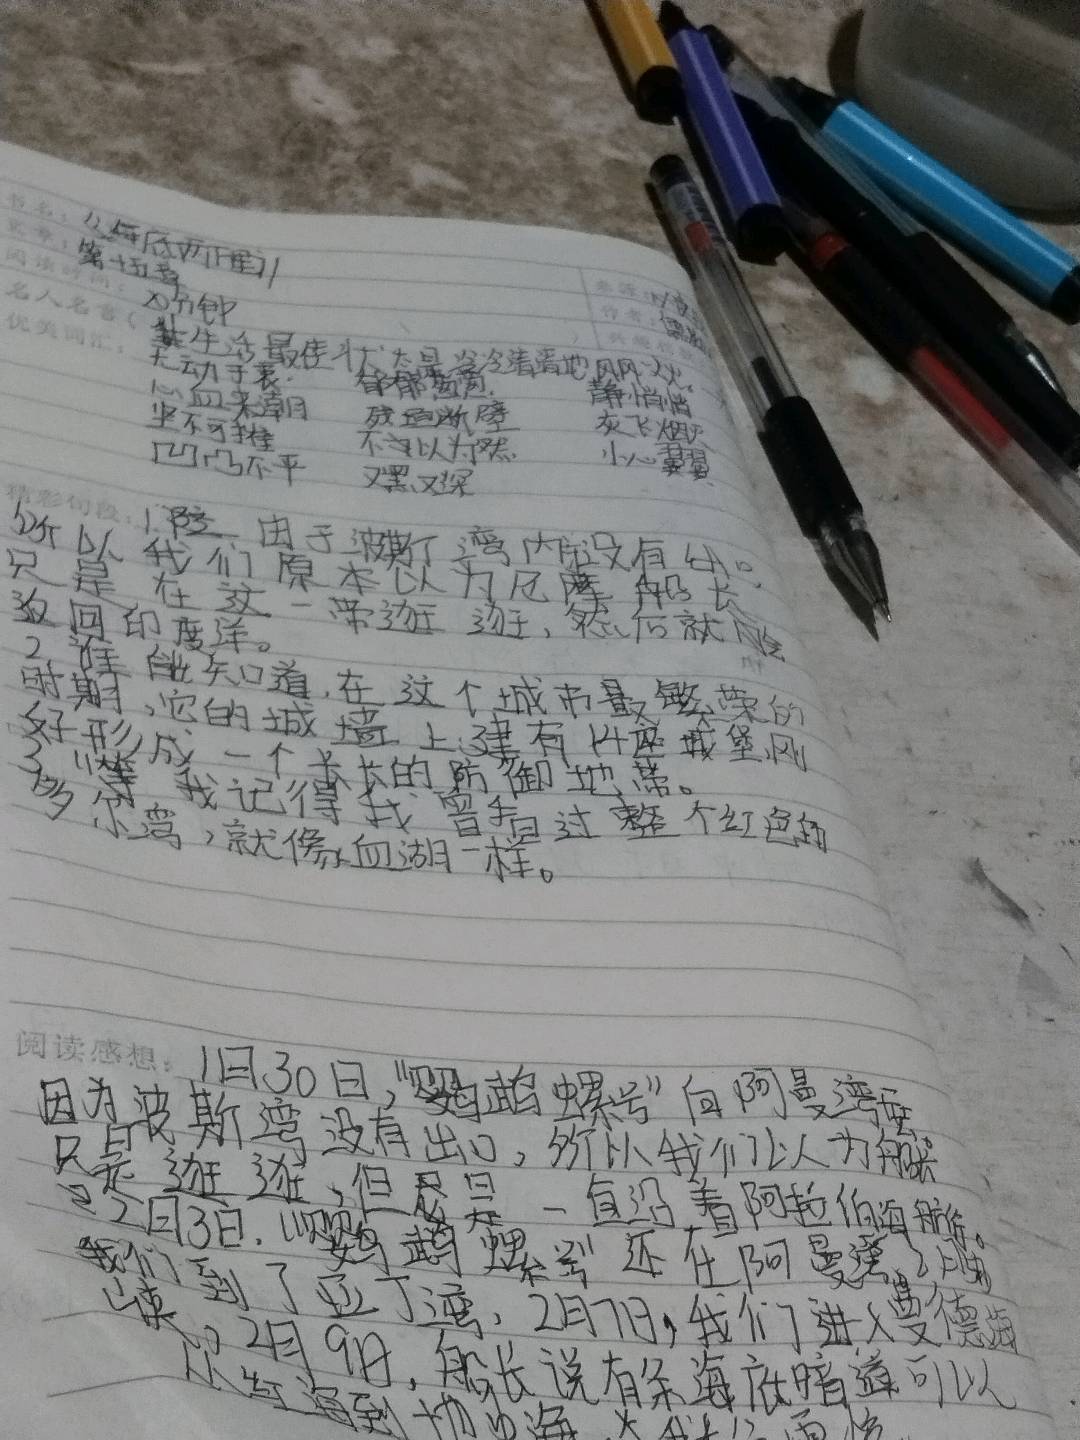 书名：《海底两万里》
章节：第十五章
阅读时间：20分钟
名人名言（生活最佳状态是冷冷清清地风风火火。）
优美词汇：无动于衷 郁郁葱葱 静悄悄
心血来潮 残垣断壁 灰飞烟灭
坐不可推 不以为然 小心翼翼
凹凸不平 又黑又深
精彩句段：1. 由于波斯湾内没有出口，
所以我们原本以为尼摩船长
只是在这一带逛逛，然后就会
返回印度洋。
2 谁能知道，在这个城市最繁荣的
时期，它的城墙上建有14座城堡，刚
好形成一个长长的防御地带。
3 我记得我曾看过整个红色的
多尔湾，就像血湖一样。
阅读感想：1日30日，“鹦鹉螺号”向阿曼湾
因为波斯湾没有出口，所以我们以为船长
只是逛逛，但是一直沿着阿拉伯海航行。
2日3日，“鹦鹉螺号”还在阿曼湾，
我们到了亚丁湾，2月7日，我们进入曼德海
峡。2月9日，船长说有条海底暗道可以
从红海到地中海